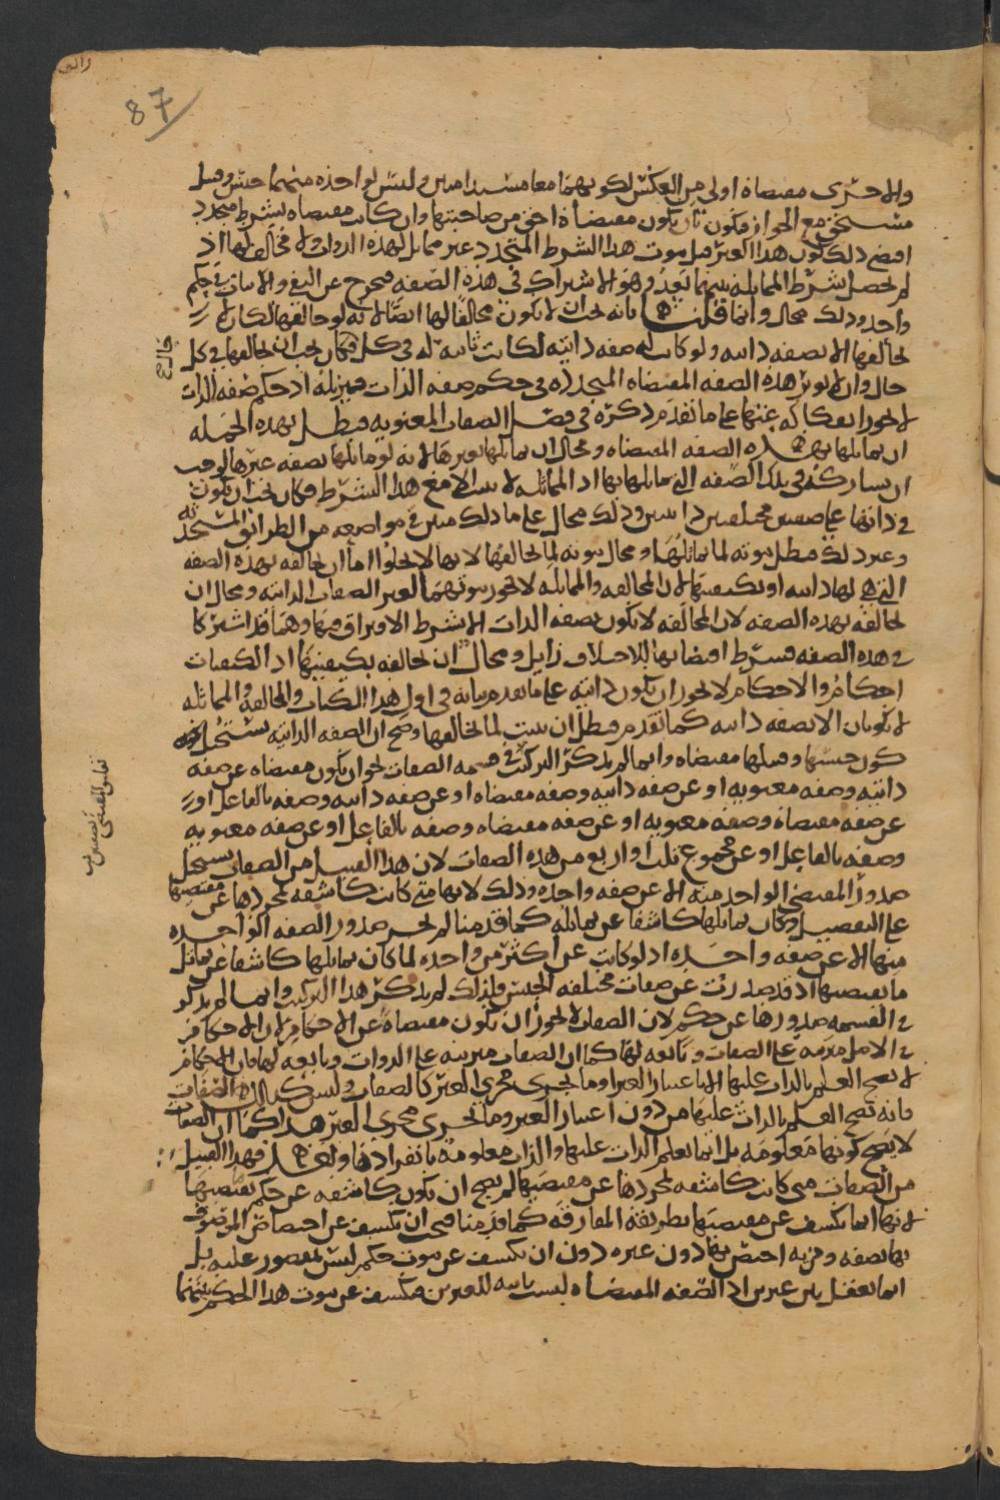 87
والاخرى مقتضاة اولى من العكس لكونهما معا مستدامتين وليس لواحدة منهما جنس وقبيل
مستحق مع الجواز فتكون بان تكون مقتضاة احق من صاحبتها وان كانت مقتضاه بشرط متجدد
اقتضى ذلك كون هذا الغير قبل ثبوت هذا الشرط المتجدد غير مماثل لهذه الذوات ولا مخالف لها اذ
لم يحصل شرط المماثلة بينهما بعد وهو الاشتراك في هذه الصفه فيخرج عن النفي والاثبات في حكم
واحد وذلك محال وانما قلنا بانه يجب ان لا يكون مخالفا لها ايضا لانه لو خالفها لكان لا
يخالفها الا بصفه ذاتيه ولو كانت له صفه ذاتيه لكانت ثابته له في كل حال فكان يجب ان يخالفها في كل
حال وان لا يوثر هذه الصفه المقتضاه المتجدده في حكم صفه الذات ويزيله اذ حكم صفه الذات
لا يجوز انفكاكه عنها على ما تقدم ذكره في فصل الصفات المعنويه فبطل بهذه الجمله
ان يماثلها بهذه الصفه المقتضاه ومحال ان يماثلها بغيرها لانه لو ماثلها بصفه غيرها لوجب
ان يشاركه في تلك الصفه التي ماثلها بها اذ المماثله لا تثبت الا مع هذا الشرط فكان يجب ان تكون
في ذاتها على صفتين مختلفتين ذاتيتين وذلك محال على ما ذلك مبين في مواضعه من الطرائق المستحدثه
وعند ذلك فبطل ثبوته لما يماثلها ومحال ثبوته لما يخالفها لانها لا يخلوا اما ان يخالفه بهذه الصفه
التي هي لها ذاتيه او بكيفيتها لان المخالفه والمماثله لا يجوز ثبوتهما لغير الصفات الذاتيه ومحال ان
يخالفه بهذه الصفه لان المخالفه لا تكون بصفه الذات الا بشرط الافتراق فيها وهما قد اشتركا
في هذه الصفه فشرط اقتضائها للاختلاف زايل ومحال ان يخالفه بكيفيتها اذ الكيفيات
احكام والاحكام لا يجوز ان تكون ذاتيه على ما تقدم بيانه في اول هذا الكتاب والمخالفه والمماثله
لا تكونان الا بصفه ذاتيه كما تقدم فبطل ان يثبت لما يخالفها وصح ان الصفه الذاتيه يستحيل
كون جنسها وقبيلها مقتضاه وانما لم يذكر التركيب في قسمه الصفات نحو ان يكون مقتضاه عن صفه
ذاتيه وصفه معنويه او عن صفه ذاتيه وصفه مقتضاه او عن صفه ذاتيه وصفه بالفاعل او
عن صفه مقتضاه وصفه معنويه او عن صفه مقتضاه وصفه بالفاعل او عن صفه معنويه
وصفه بالفاعل او عن مجموع ثلاث او اربع من هذه الصفات لان هذا القبيل من الصفات يستحيل
صدور المقتضى الواحد منه الا عن صفه واحده وذلك لانها متى كانت كاشفه بمجردها عن مقتضيها
على التفصيل وكان تماثلها كاشفا عن تماثله كما قدمنا لم يجز صدور الصفه الواحده
منها الا عن صفه واحده اذ لو كانت عن اكثر من واحده لما كان تماثلها كاشفا عن تماثل
ما يقتضيها اذ قد صدرت عن صفات مختلفه الجنس فلذلك لم يذكر هذا التركيب وانما لم يذكر
في القسمه صدورها عن حكم لان الصفات لا يجوز ان تكون مقتضاة عن الاحكام لان الاحكام
في الاصل مرتبه على الصفات وتابعه لها كما ان الصفات مترتبه على الذوات وتابعه لها فان الاحكام
لا يصح العلم بالذات عليها الا باعتبار الغير او ما يجري مجرى الغير كالصفات وليس كذلك الصفات
فانه يصح العلم بالذات عليها من دون اعتبار الغير وما يجري مجرى الغير هذا كما ان الصفات
لا يصح كونها معلومه بل انما نعلم الذات عليها والذات معلومه بانفرادها فهذا القبيل
من الصفات متى كانت كاشفه بمجردها عن مقتضيها لم يصح ان تكون كاشفه عن حكم يقتضيها
لانها انما تكشف عن مقتضيها بطريقه المفارقه كما قدمنا فيجب ان تكشف عن اختصاص الموصوف
بها بصفه ومزيه اختص بها دون غيره دون ان تكشف عن ثبوت حكم ليس بمقصور عليه بل
انما يعقل بين غيرين اذ الصفه المقتضاه ليست ثابته للغيرين فتكشف عن ثبوت هذا الحكم بينهما